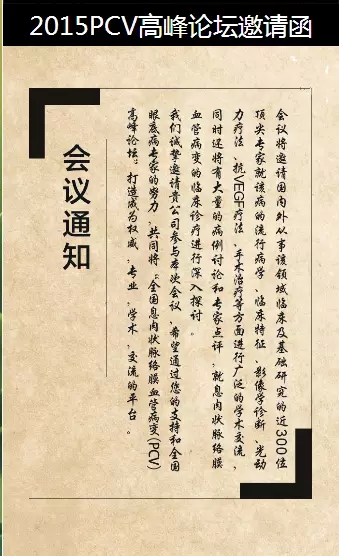 2015PCV高峰论坛邀请函
会议通知
会议将邀请国内外从事该领域临床及基础研究的近300位
顶尖专家就该病的流行病学、临床特征、影像学诊断、光动
力疗法、抗VEGF疗法、手术治疗等方面进行广泛的学术交流,
同时还将有大量的病例讨论和专家点评,就息肉状脉络膜
血管病变的临床诊疗进行深入探讨。
我们诚挚邀请贵公司参与本次会议、希望通过您的支持和全国
眼底病专家的努力,共同将“全国息肉状脉络膜血管病变(PCV)
高峰论坛”打造成为权威,专业,学术,交流的平台。